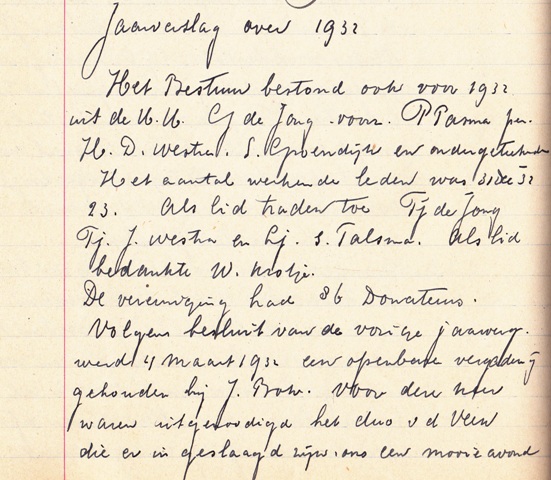 Jaarverslag over 1932
Het Bestuur bestond ook voor 1932
uit de H.H. G de Jong voorz. P Pasma pen.
H. D. Westra. S. Groendijk en ondergetekende
Het aantal werkende leden was 31 Dec 32
23. Als lid traden toe Tj de Jong
Tj. J. Westra en Lj. S. Talsma. Als lid
bedankte W.
De vereeniging had 86 Donateurs.
Volgens besluit van de vorige jaarverg.
werd 4 Maart 1932 een openbare vergadering
gehouden bij J. Brow. Voor deze keer
waren uitgenoodigd het duo v d Veen
die er in geslaagd zijn ons een mooie avond